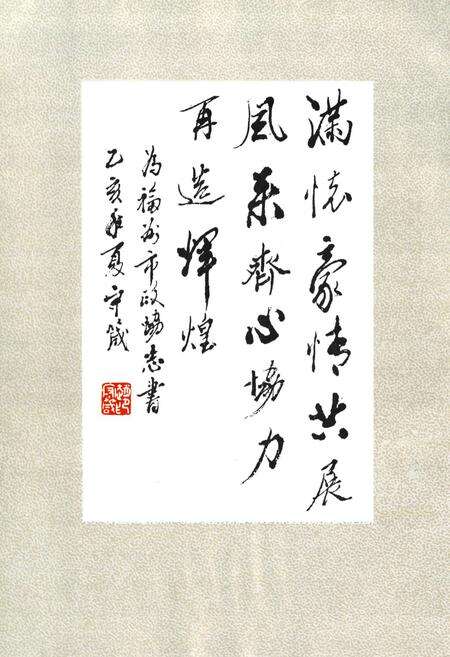 滿懷豪情共展
風采齊心協力
再造輝煌
為福州市政協志書
乙亥年夏守箴
趙守箴印